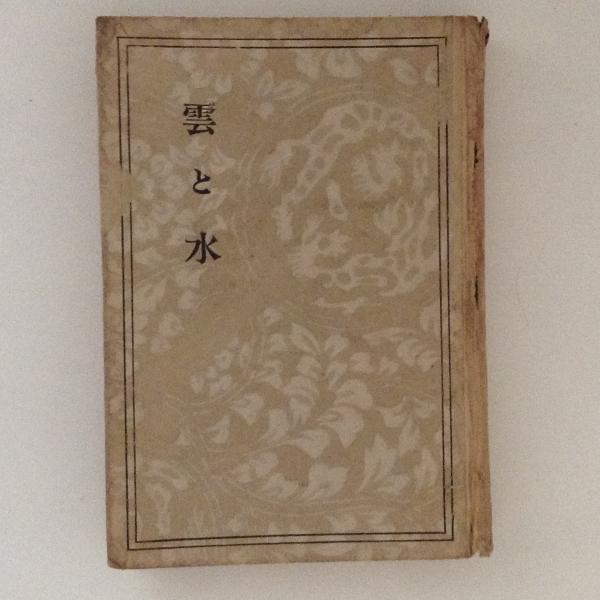 雲と水